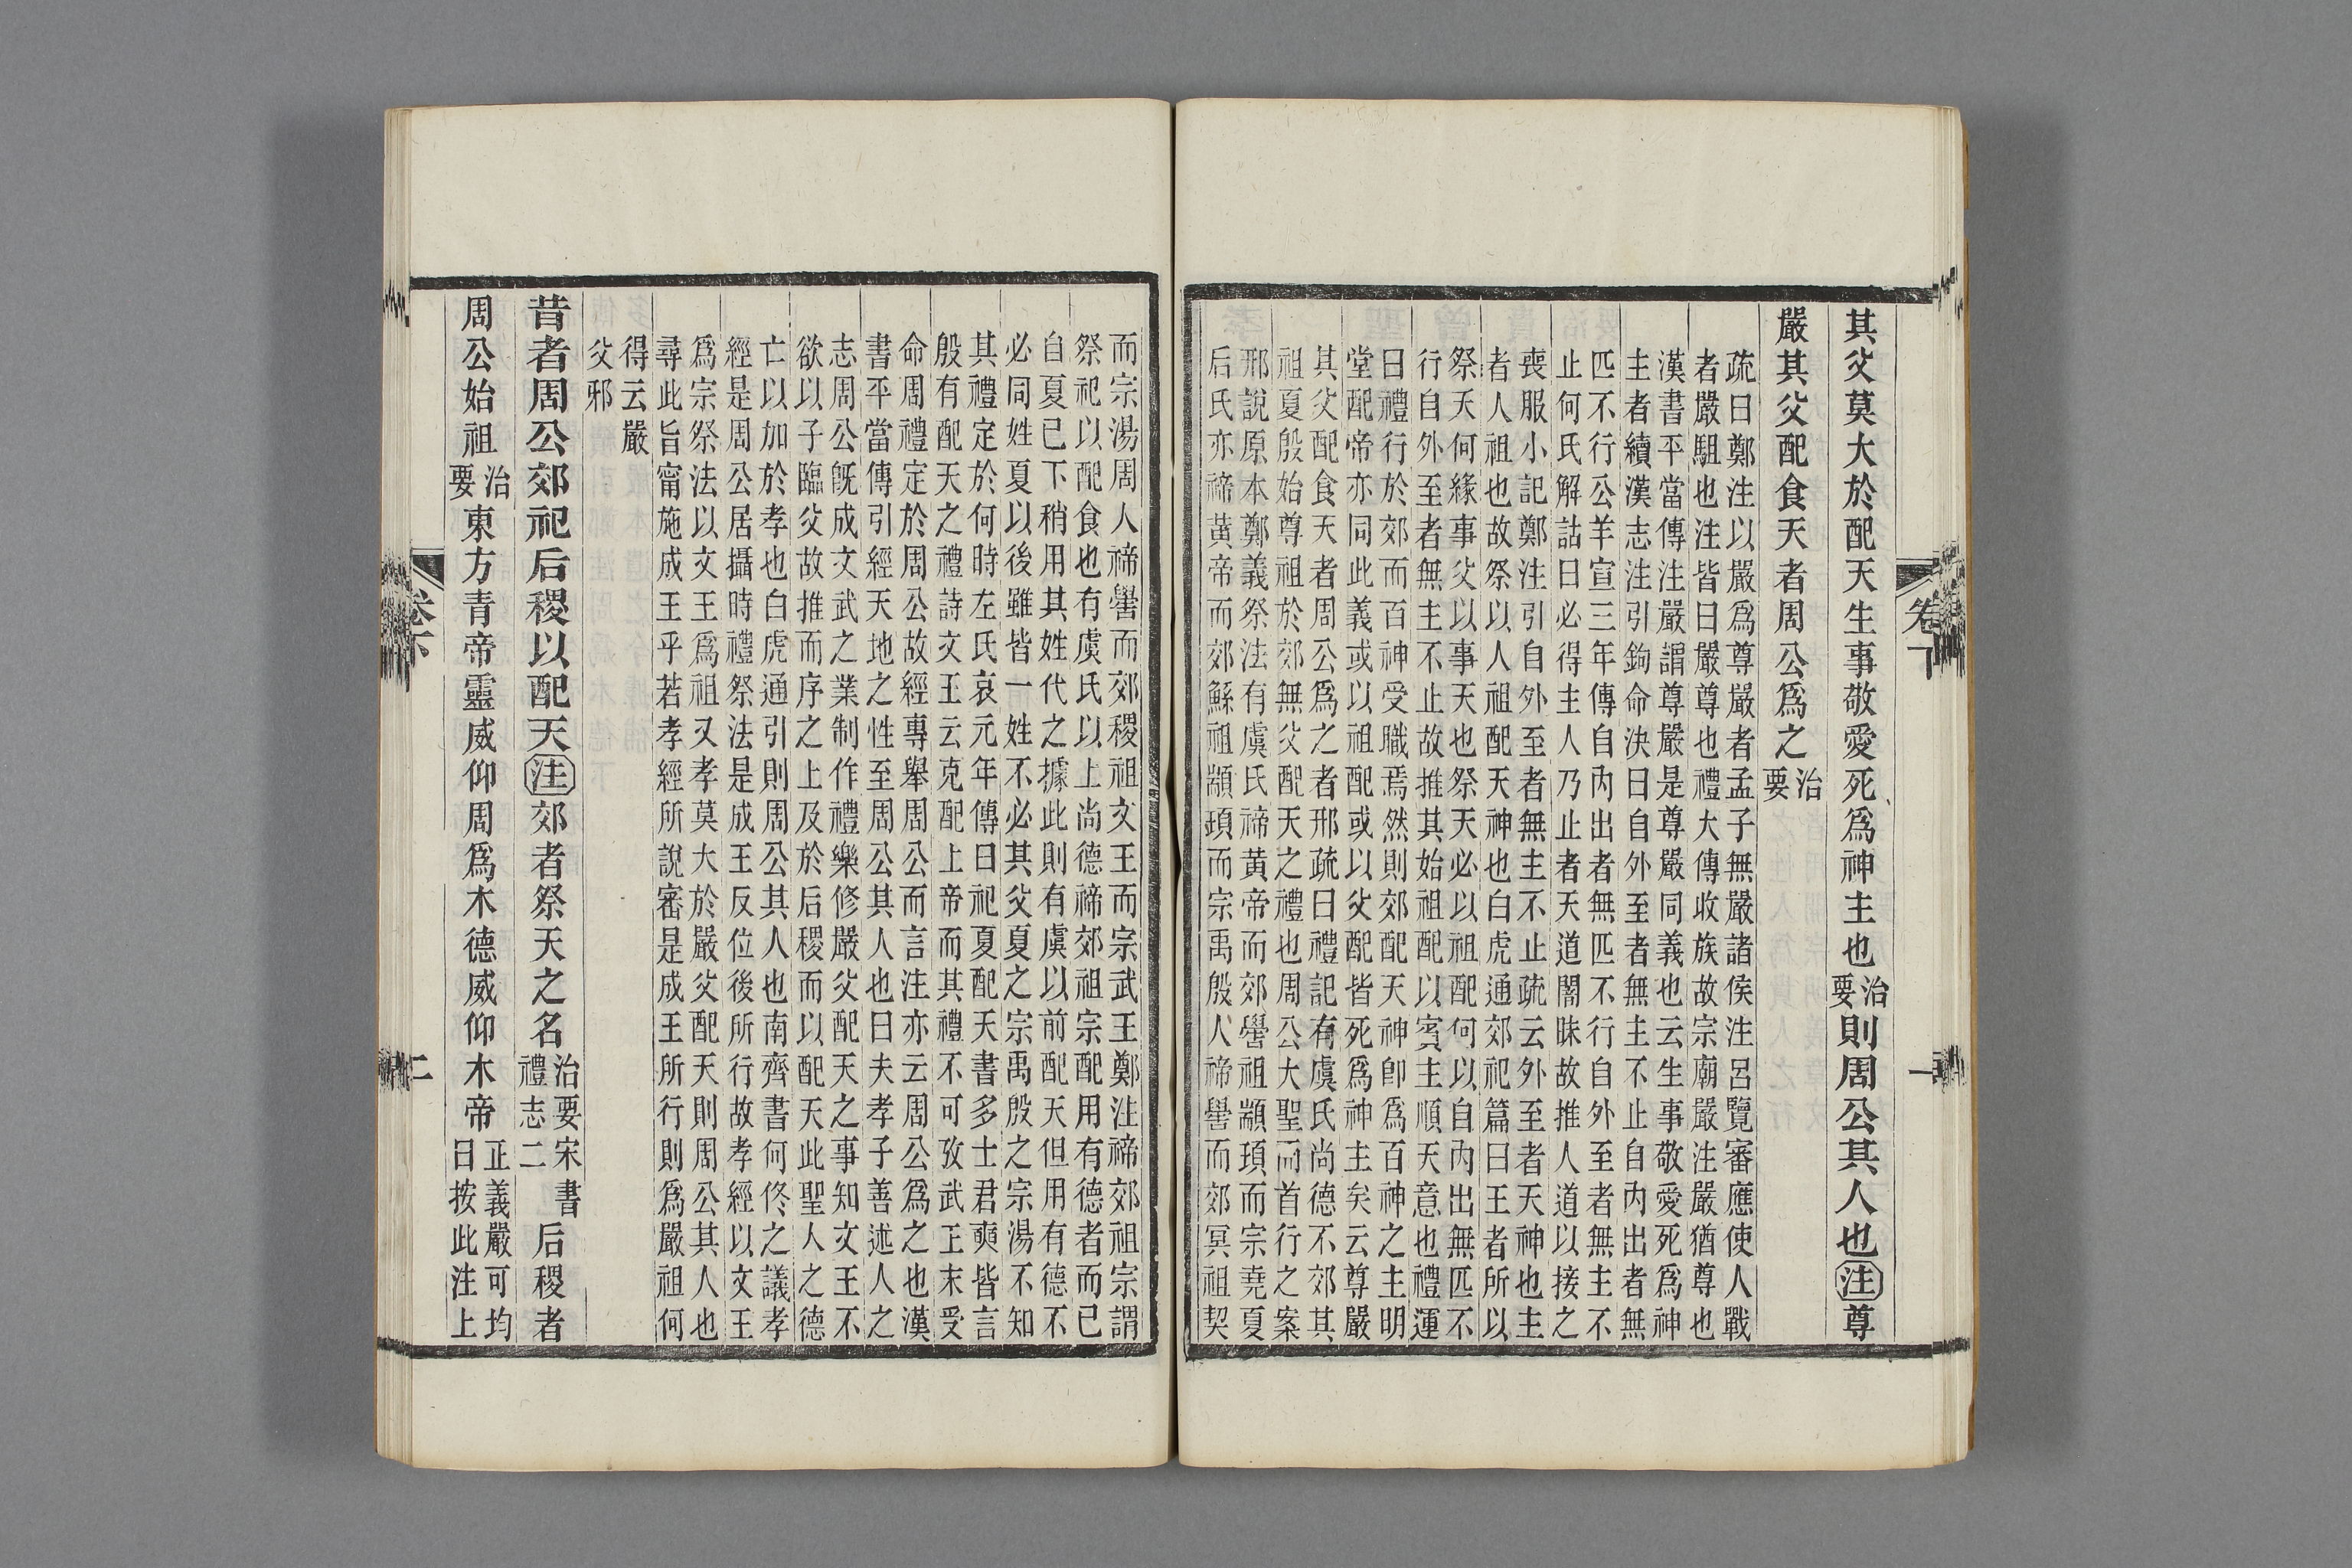 其父莫大於配天生事敬愛死爲神主也治要則周公其人也注尊
嚴其父配食天者周公爲之治要
疏曰鄭注以嚴爲尊嚴者孟子無嚴諸侯注呂覽審應使人戰
者嚴駔也注皆曰嚴尊也禮大傳收族故宗廟嚴注嚴猶尊也
漢書平當傳注嚴謂尊嚴是尊嚴同義也云生事敬愛死爲神
主者續漢志注引鉤命決曰自外至者無主不止自內出者無
匹不行公羊宣三年傳自內出者無匹不行自外至者無主不
止何氏解詁曰必得主人乃止者天道闇昧故推人道以接之
喪服小記鄭注引自外至者無主不止疏云外至者天神也主
者人祖也故祭以人祖配天神也白虎通郊祀篇曰王者所以
祭天何緣事父以事天也祭天必以祖配何以自內出無匹不
行自外至者無主不止故推其始祖配以賓主順天意也禮運
曰禮行於郊而百神受職焉然則郊配天神卽爲百神之主明
堂配帝亦同此義或以祖配或以父配皆死爲神主矣云尊嚴
其父配食天者周公爲之者邢疏曰禮記有虞氏尚德不郊其
祖夏殷始尊祖於郊無父配天之禮也周公大聖而首行之案
邢說原本鄭義祭法有虞氏禘黃帝而郊嚳祖顓頊而宗堯夏
后氏亦禘黃帝而郊鯀祖顓頊而宗禹殷人禘嚳而郊冥祖契
卷下
一
而宗湯周人禘嚳而郊稷祖文王而宗武王鄭注禘郊祖宗謂
祭祀以配食也有虞氏以上尚德禘郊祖宗配用有德者而已
自夏已下稍用其姓代之據此則有虞以前配天但用有德不
必同姓夏以後雖皆一姓不必其父夏之宗禹殷之宗湯不知
其禮定於何時左氏哀元年傳曰祀夏配天書多士君奭皆言
殷有配天之禮詩文王云克配上帝而其禮不可攷武王末受
命周禮定於周公故經專舉周公而言注亦云周公爲之也漢
書平當傳引經天地之性至周公其人也曰夫孝子善述人之
志周公既成文武之業制作禮樂修嚴父配天之事知文王不
欲以子臨父故推而序之上及於后稷而以配天此聖人之德
亡以加於孝也白虎通引則周公其人也南齊書何佟之議孝
經是周公居攝時禮祭法是成王反位後所行故孝經以文王
爲宗祭法以文王爲祖又孝莫大於嚴父配天則周公其人也
尋此旨甯施成王乎若孝經所說審是成王所行則爲嚴祖何
得云嚴
父邪
昔者周公郊祀后稷以配天注郊者祭天之名治要宋書禮志二后稷者
周公始祖治要東方青帝靈威仰周爲木德威仰木帝正義嚴可均曰按此注上
卷下
二